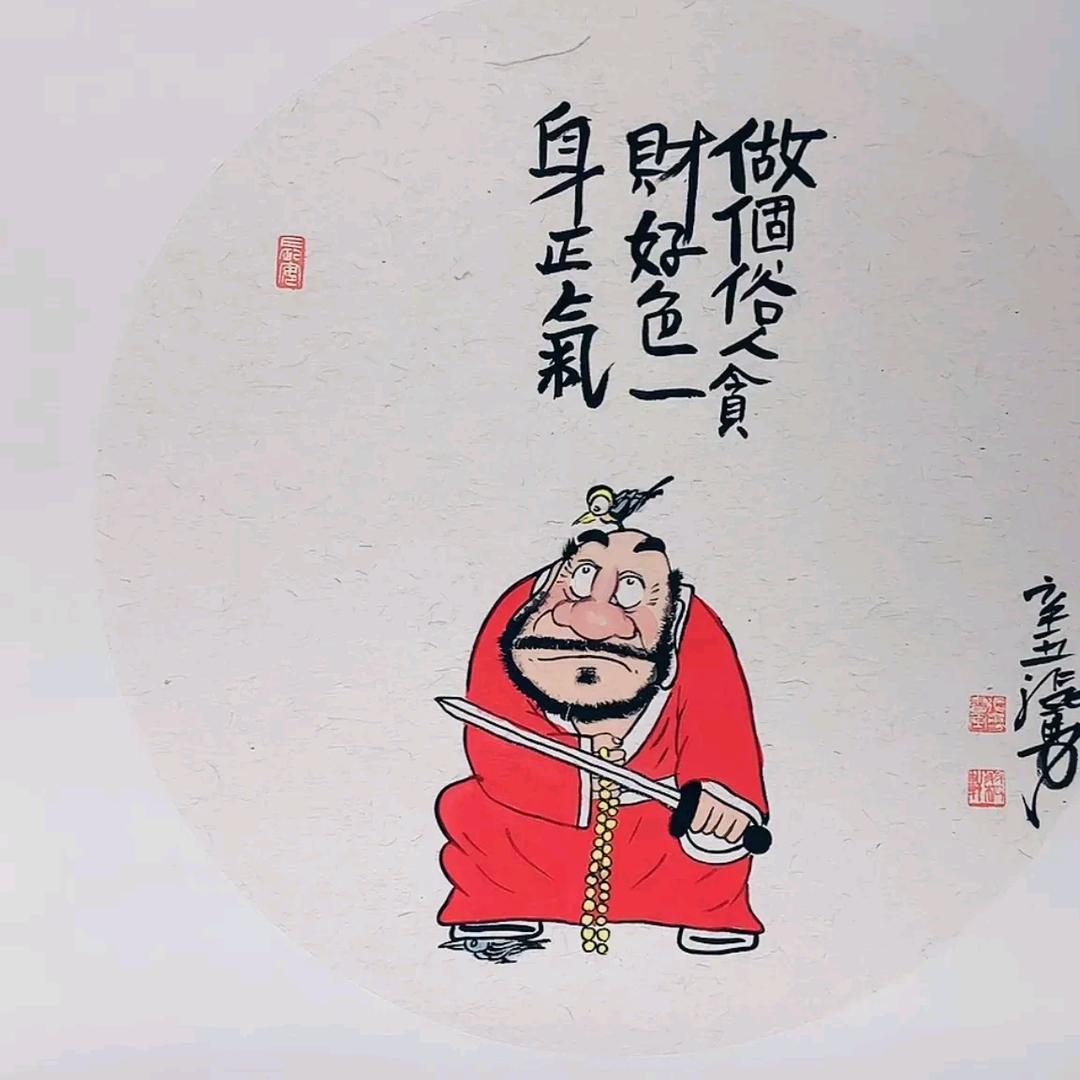 做個俗人貪
財好色一
身正氣
辛丑